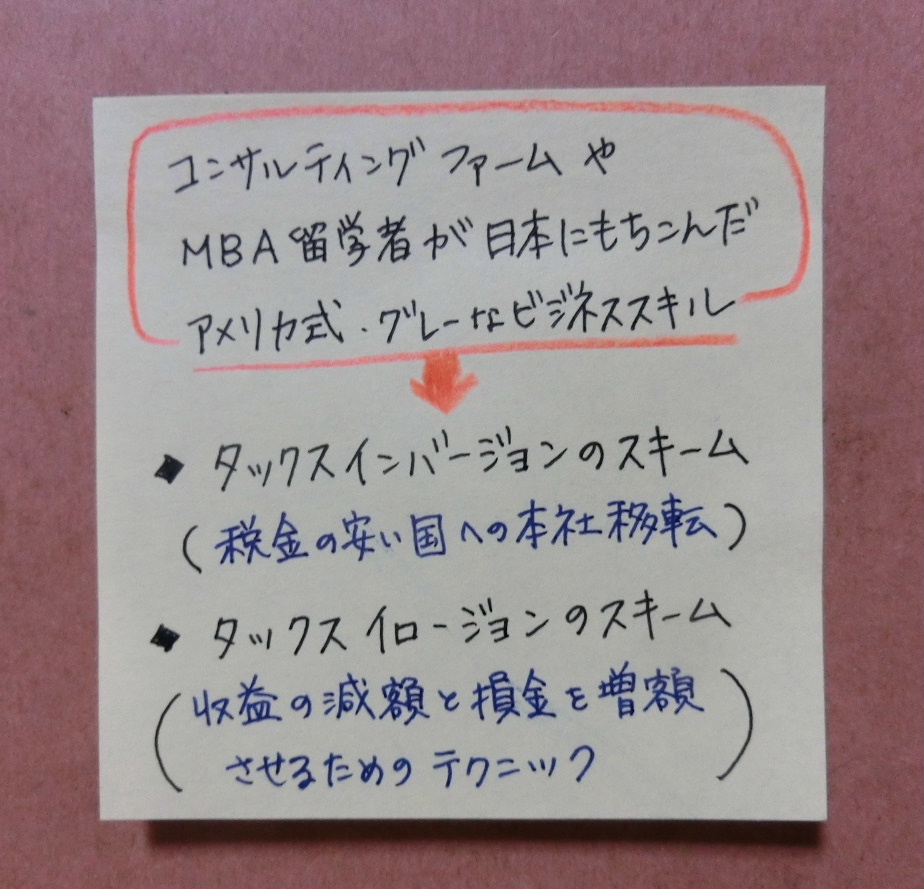 コンサルティングファームや
MBA留学者が日本にもちこんだ
アメリカ式・グレーなビジネススキル
◆ タックスインバージョンのスキーム
(税金の安い国への本社移転)
◆ タックスイロージョンのスキーム
(収益の減額と損金を増額
させるためのテクニック)